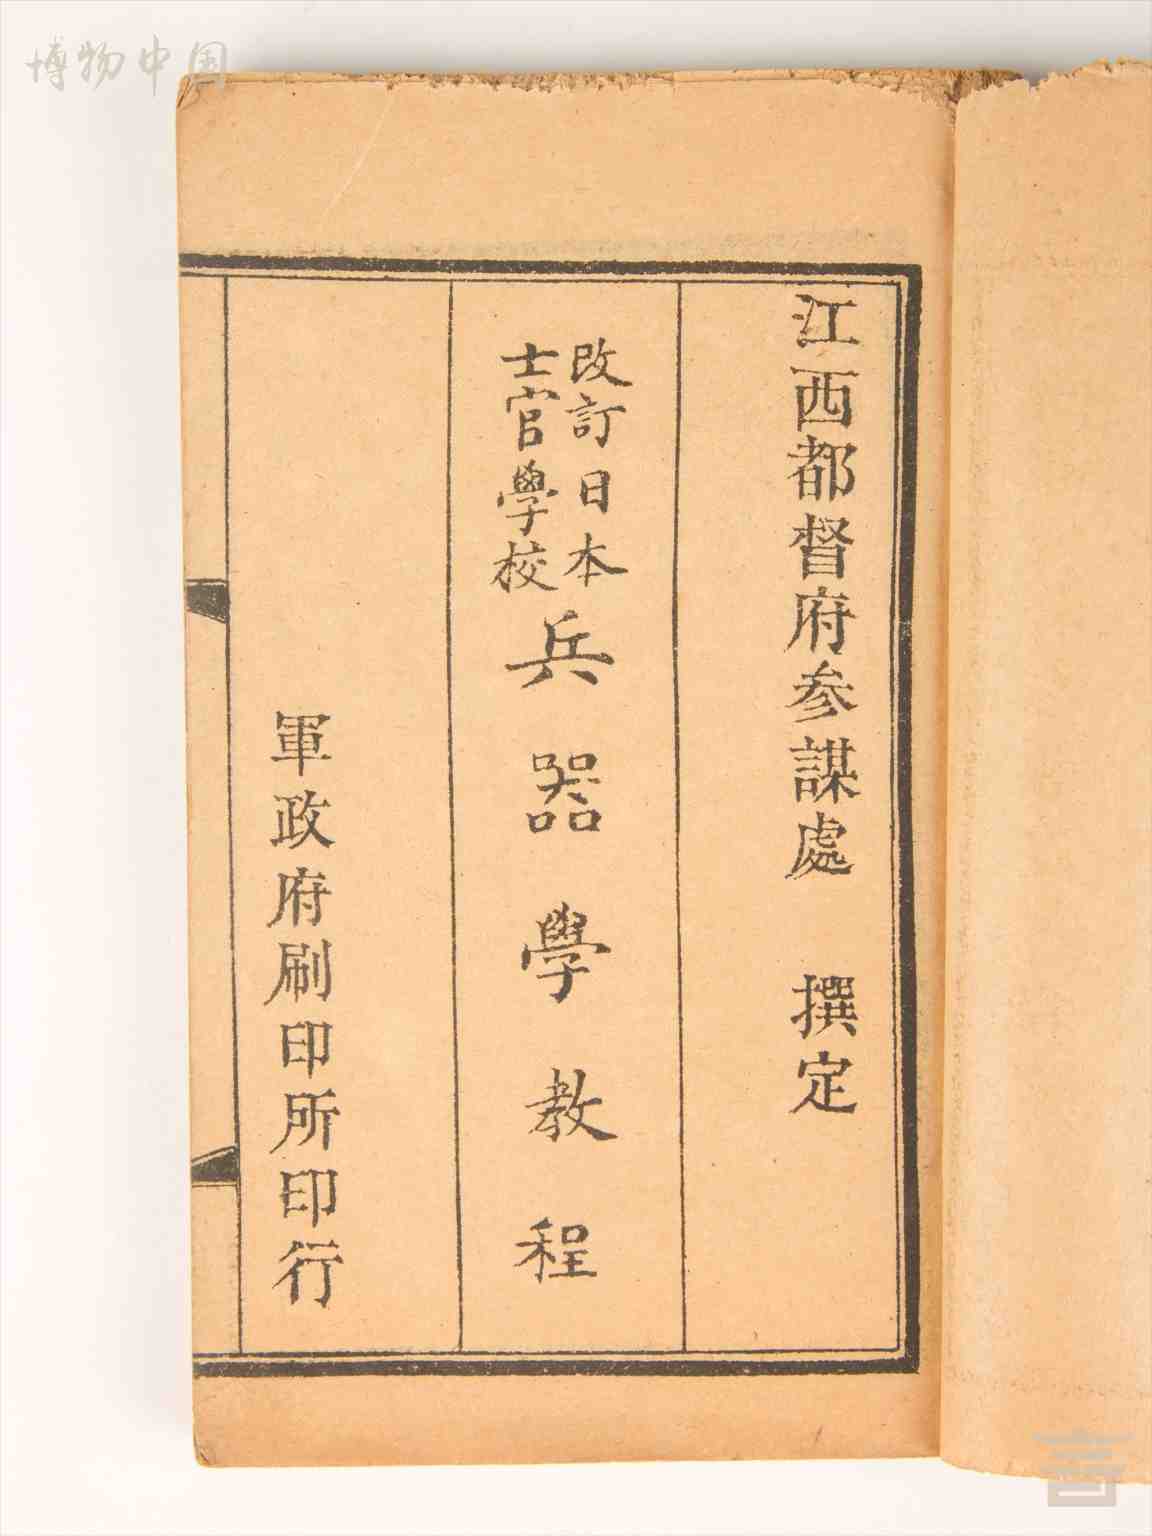 江西都督府参謀處 撰定
改訂日本
士官學校
兵器學教程
軍政府刷印所印行
博物中国